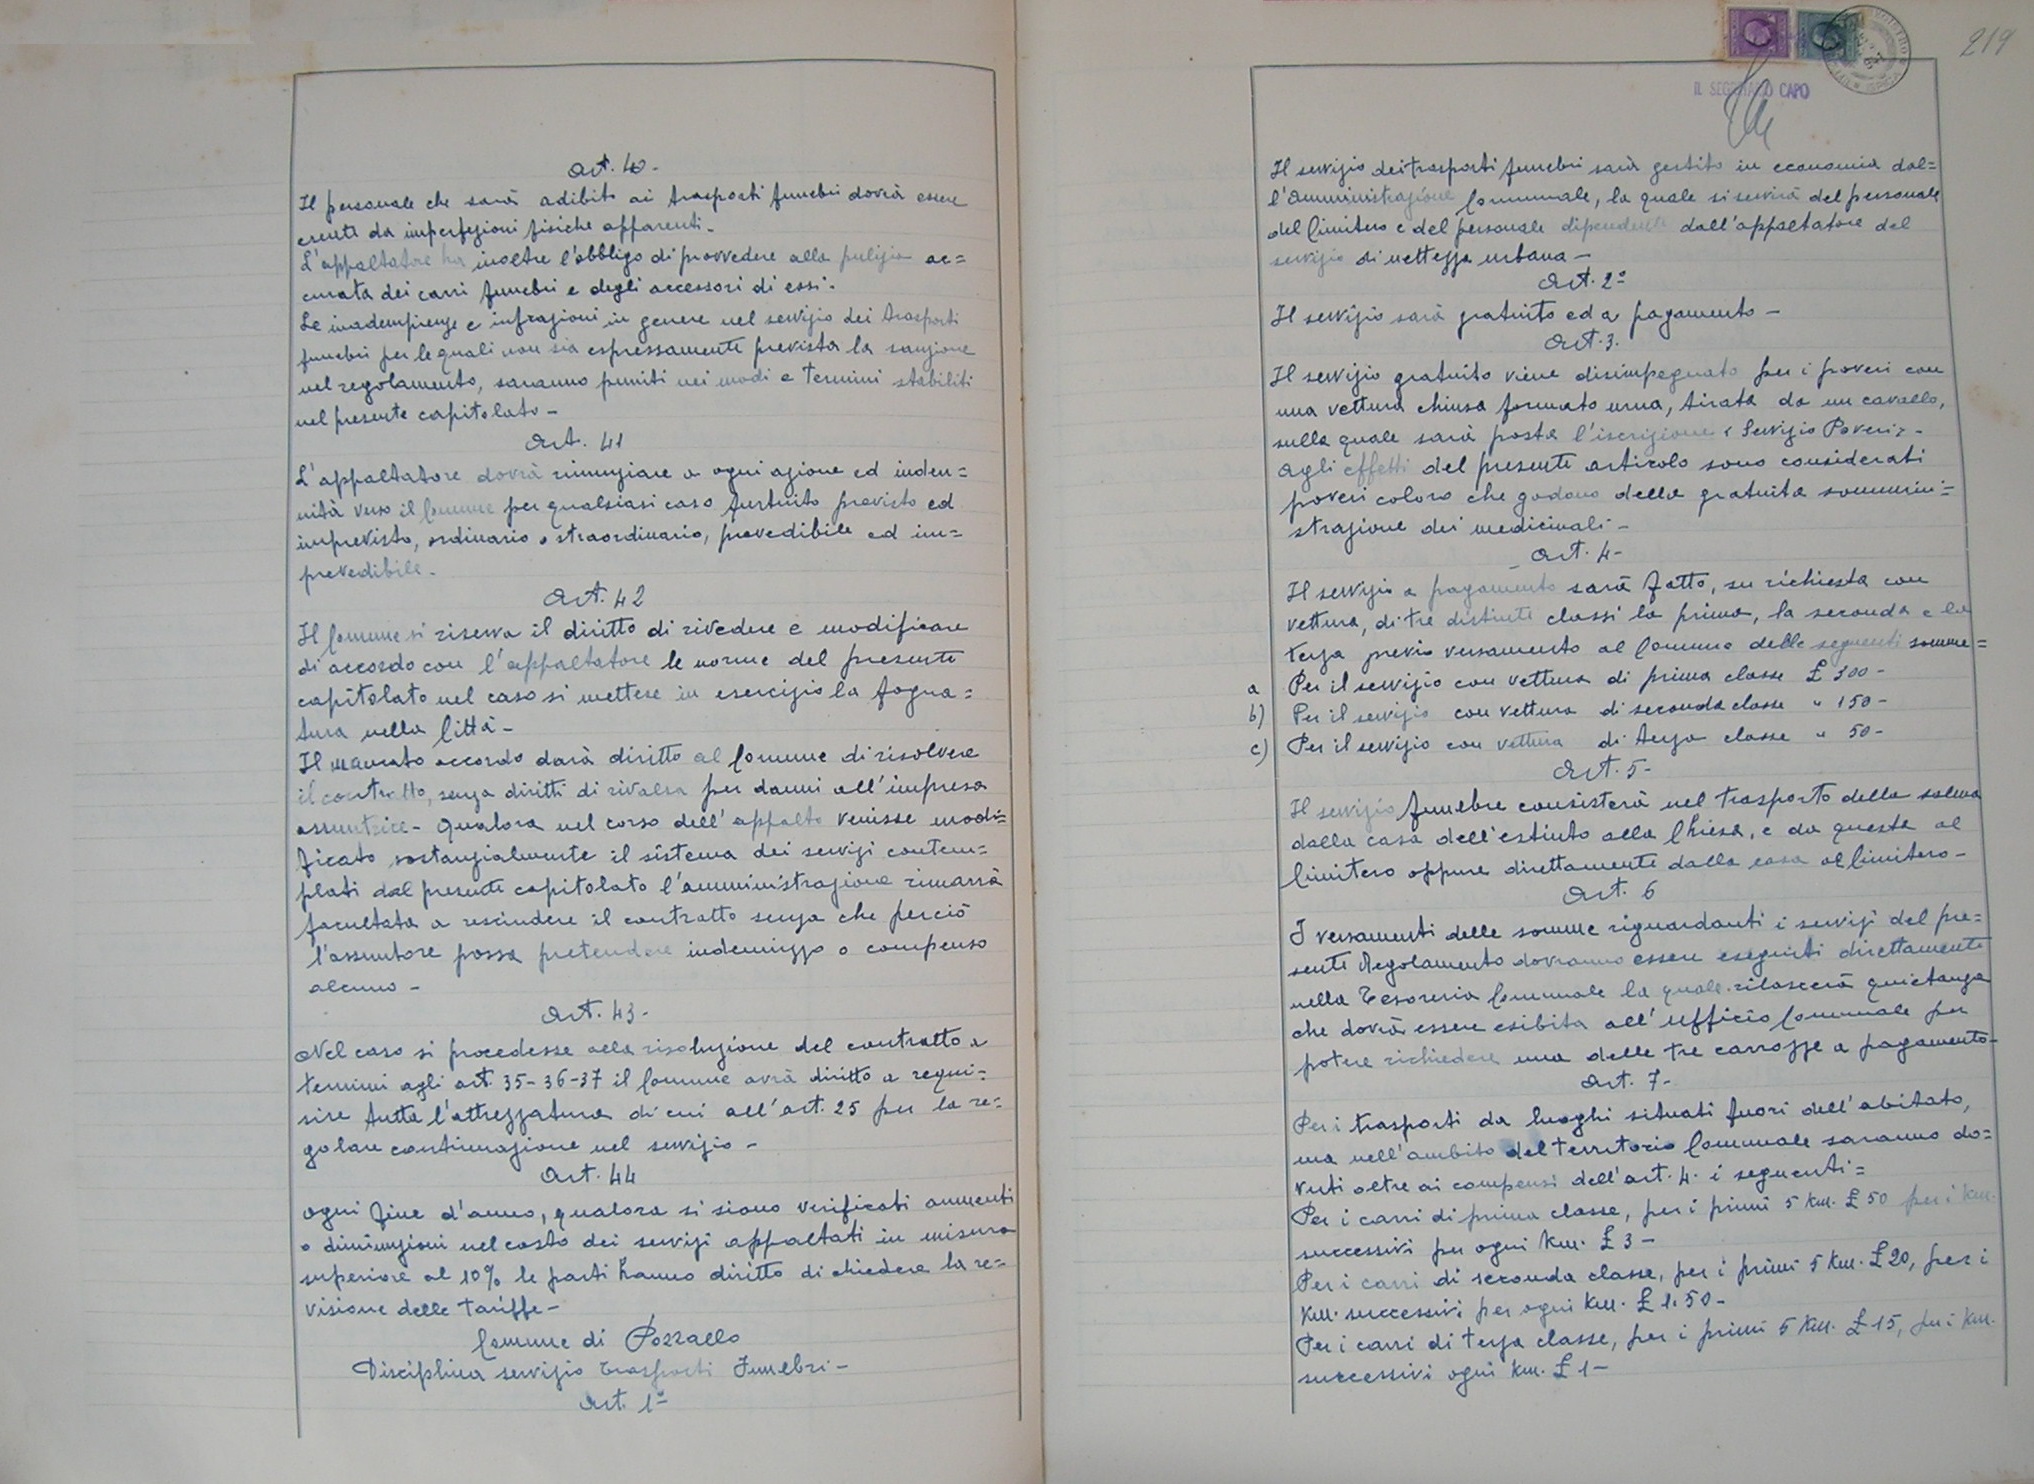 Art. 40-
Il personale che sarà adibito ai trasporti funebri dovrà essere
esente da imperfezioni fisiche apparenti-
L'appaltatore ha inoltre l'obbligo di provvedere alla pulizia ac=
curata dei carri funebri e degli accessori di essi-
Le inadempienze e infrazioni in genere nel servizio dei trasporti
funebri per le quali non sia espressamente prevista la sanzione
nel regolamento, saranno puniti nei modi e termini stabiliti
nel presente capitolato-
Art. 41
L'appaltatore dovrà rinunziare a ogni azione ed inden=
nità verso il Comune per qualsiasi caso furtuito previsto ed
imprevisto, ordinario o straordinario, prevedibile ed im=
prevedibile-
Art. 42
Il Comune si riserva il diritto di rivedere e modificare
di accordo con l'appaltatore le norme del presente
capitolato nel caso si mettese in esercizio la fogna=
tura nella Città-
Il mancato accordo darà diritto al Comune di risolvere
il contratto, senza diritti di rivalsa per danni all'impresa
assuntrice- Qualora nel corso dell'appalto venisse modi=
ficato sostanzialmente il sistema dei servizi contem=
plati dal presente capitolato l'amministrazione rimarrà
facultata a rescindere il contratto senza che perciò
l'assuntore possa pretendere indennizzo o compenso
alcuno-
Art. 43-
Nel caso si procedesse alla risoluzione del contratto a
termini agli art. 35-36-37 il Comune avrà diritto a requi=
sire tutta l'attrezzatura di cui all'art. 25 per la re=
golare continuazione nel servizio-
Art. 44
Ogni fine d'anno, qualora si siano verificati aumenti
o diminuzioni nel costo dei servizi appaltati in misura
superiore al 10% le parti hanno diritto di chiedere la re=
visione delle tariffe-
Comune di Pozzallo
Disciplina servizio trasporti Funebri-
Art. 1°
219
IL SEGRETARIO CAPO
Il servizio dei trasporti funebri sarà gestito in economia dal=
l'Amministrazione Comunale, la quale si servirà del personale
del Cimitero e del personale dipendente dall'appaltatore del
servizio di nettezza urbana-
Art. 2°
Il servizio sarà gratuito ed a pagamento-
Art. 3.
Il servizio gratuito viene disimpegnato per i poveri con
una vettura chiusa formato urna, tirata da un cavallo,
sulla quale sarà posta l'iscrizione "Servizio Poveri"-
Agli effetti del presente articolo sono considerati
poveri coloro che godono della gratuita sommini=
strazione dei medicinali-
Art. 4-
Il servizio a pagamento sarà fatto, su richiesta con
vettura, di tre distinte classi la prima, la seconda e la
terza previo versamento al Comune delle seguenti somme=
a Per il servizio con vettura di prima classe £ 300-
b) Per il servizio con vettura di seconda classe " 150-
c) Per il servizio con vettura di terza classe " 50-
Art. 5-
Il servizio funebre consisterà nel trasporto della salma
dalla casa dell'estinto alla Chiesa, e da questa al
Cimitero oppure direttamente dalla casa al Cimitero-
Art. 6
I versamenti delle somme riguardanti i servizi del pre=
sente Regolamento dovranno essere eseguiti direttamente
nella Tesoreria Comunale la quale rilascerà quietanza
che dovrà essere esibita all'ufficio Comunale per
potere richiedere una delle tre carrozze a pagamento-
Art. 7-
Per i trasporti da luoghi situati fuori dell'abitato,
ma nell'ambito del territorio Comunale saranno do=
vuti oltre ai compensi dell'art. 4. i seguenti=
Per i carri di prima classe, per i primi 5 Km. £ 50 per i Km.
successivi per ogni Km. £ 3-
Per i carri di seconda classe, per i primi 5 Km. £ 20, per i
Km. successivi per ogni Km. £ 1.50-
Per i carri di terza classe, per i primi 5 Km. £ 15, per i Km.
successivi ogni Km. £ 1-